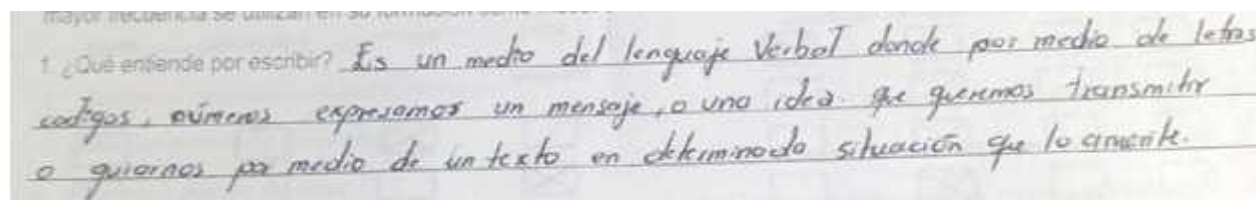 mayor frecuencia se utilizan en su formación como
1. ¿Qué entiende por escribir? Es un medio del lenguaje Verbal donde por medio de letras
codigos, números expresamos un mensaje, o una idea que queremos transmitir
o guiarnos por medio de un texto en determinada situación que lo amerite.